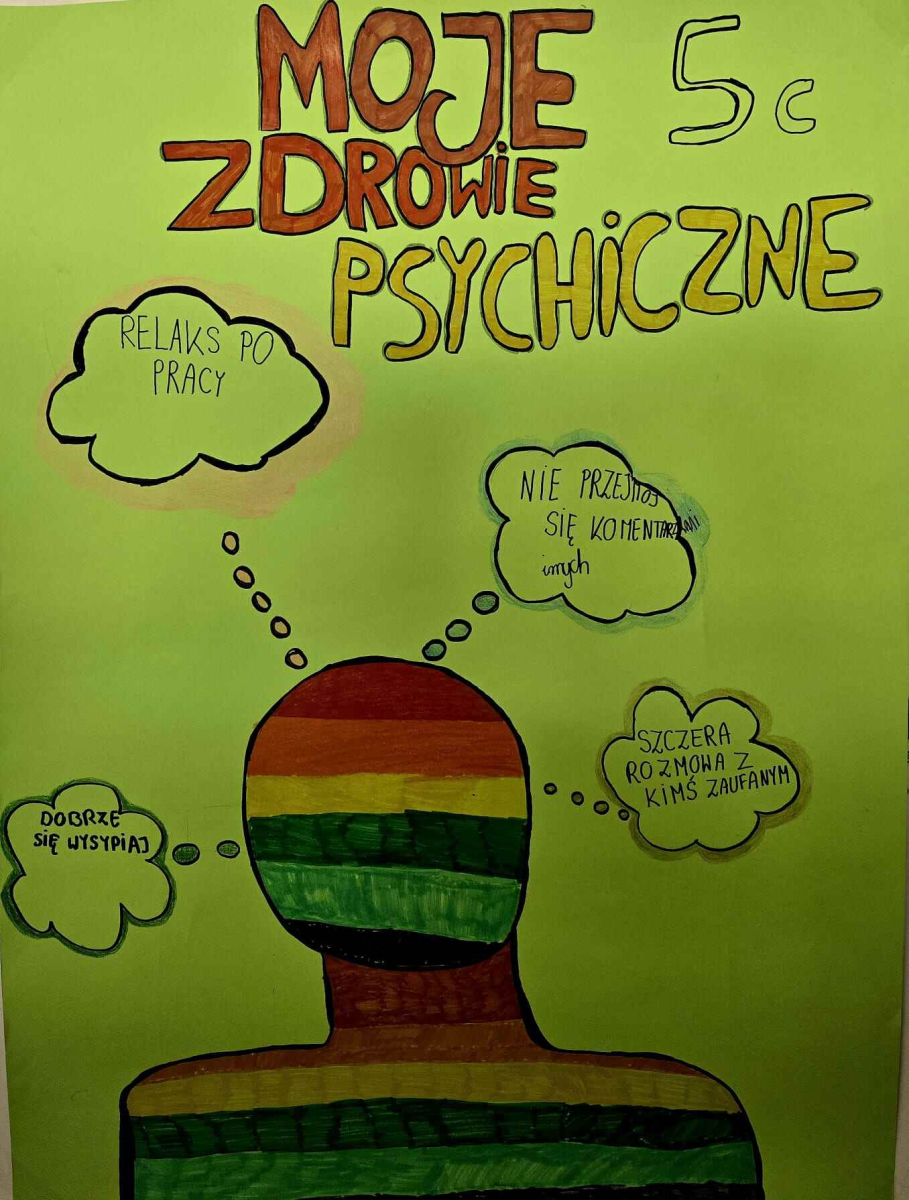 MOJE
5c
ZDROWiE
PSYCHiCZNE
RELAKS PO
PRACY
NiE PRZEJMUJ
SIĘ KOMENTARZAMi
innych
SZCZERA
ROZMOWA Z
KiMŚ ZAUFANYM
DOBRZE
SiĘ WYSYPIAJ